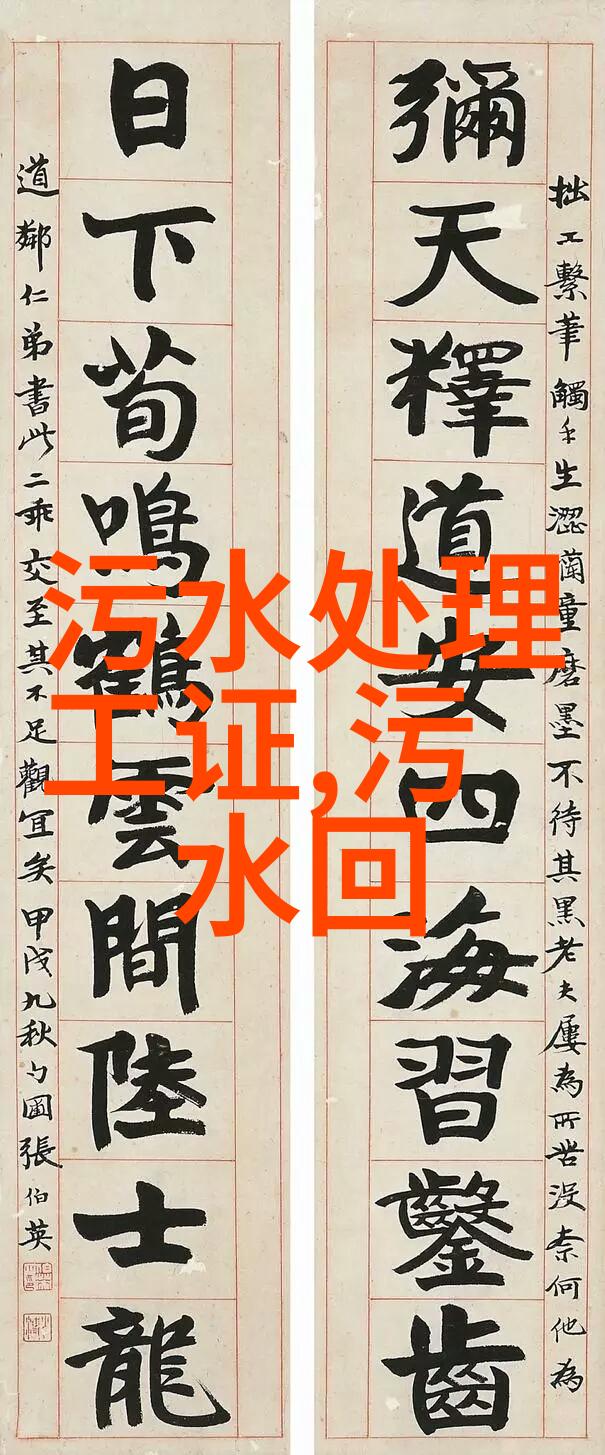 拙工繫筆觸手生澀蘭童磨墨不待其黑老夫屢為所苦沒柰何他為
彌天釋道安四海習鑿齒
日下荀鳴鶴雲間陸士龍
道鄰仁弟書此二乖交至其不足觀宜矣甲戌九秋勺圃張伯英
污水处理
工证,污
水回